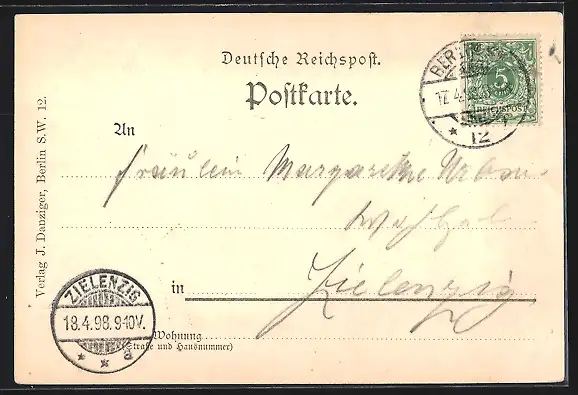 Deutsche Reichspost.
Postkarte.
BERLIN
17.4.
12
5
REICHSPOST
An
Fräulein Margarethe
in Zielenzig
Wohnung
(Straße und Hausnummer)
ZIELENZIG
18.4.98.9-10V.
* * a
Verlag J. Danziger, Berlin S.W. 12.